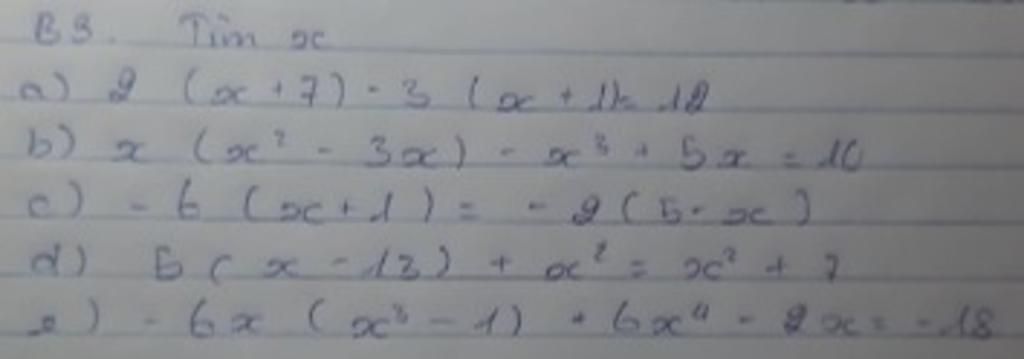 B3. Tìm x
a) 2 (x + 7) - 3 (x + 1) = 12
b) x (x² - 3x) - x³ + 5x = 10
c) - 6 (x + 1) = - 2 (5 - x)
d) 5 ( x - 13) + x² = x² + 7
e) - 6x (x³ - 1) + 6x⁴ - 2x = -18